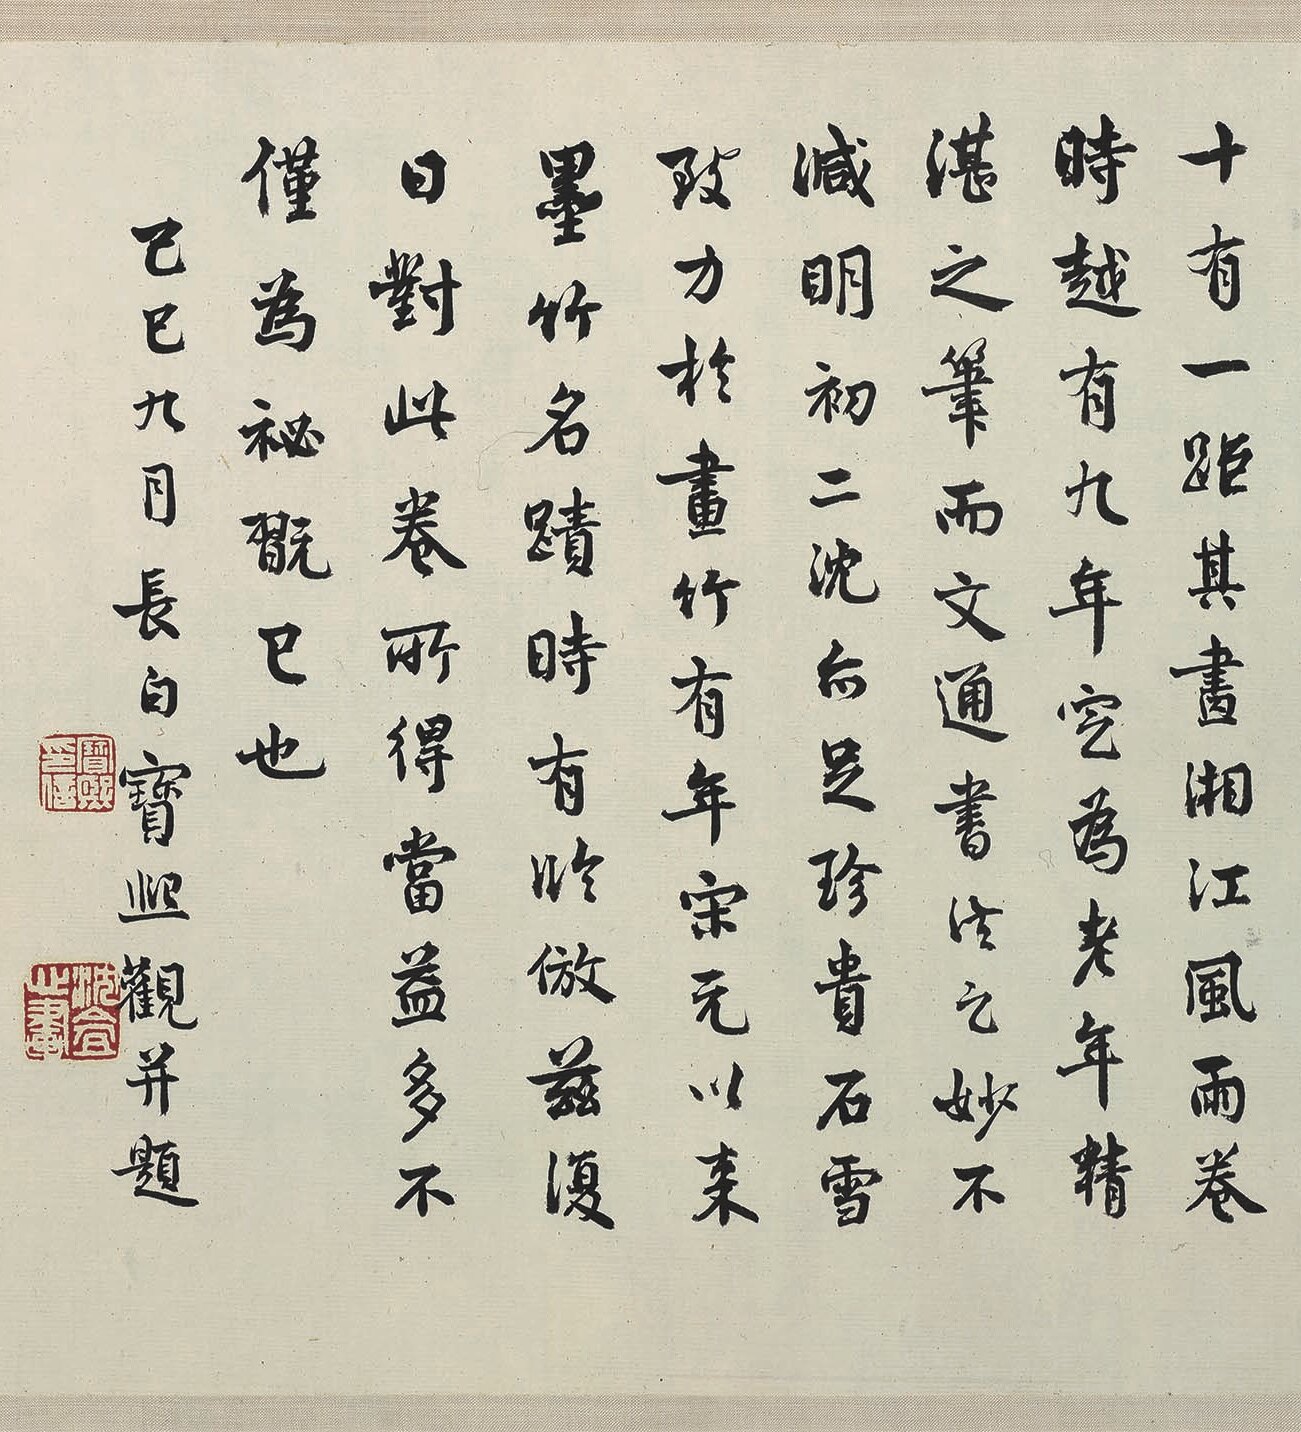 十有一距其畫湘江風雨卷
時越有九年定為老年精
湛之筆而文通書法之妙不
減明初二沈亦足珍貴石雪
致力於畫竹有年宋元以来
墨竹名蹟時有臨倣茲復
日對此卷所得當益多不
僅為祕翫已也
己巳九月長白寶熙觀并題
寶熙印信
沈盦